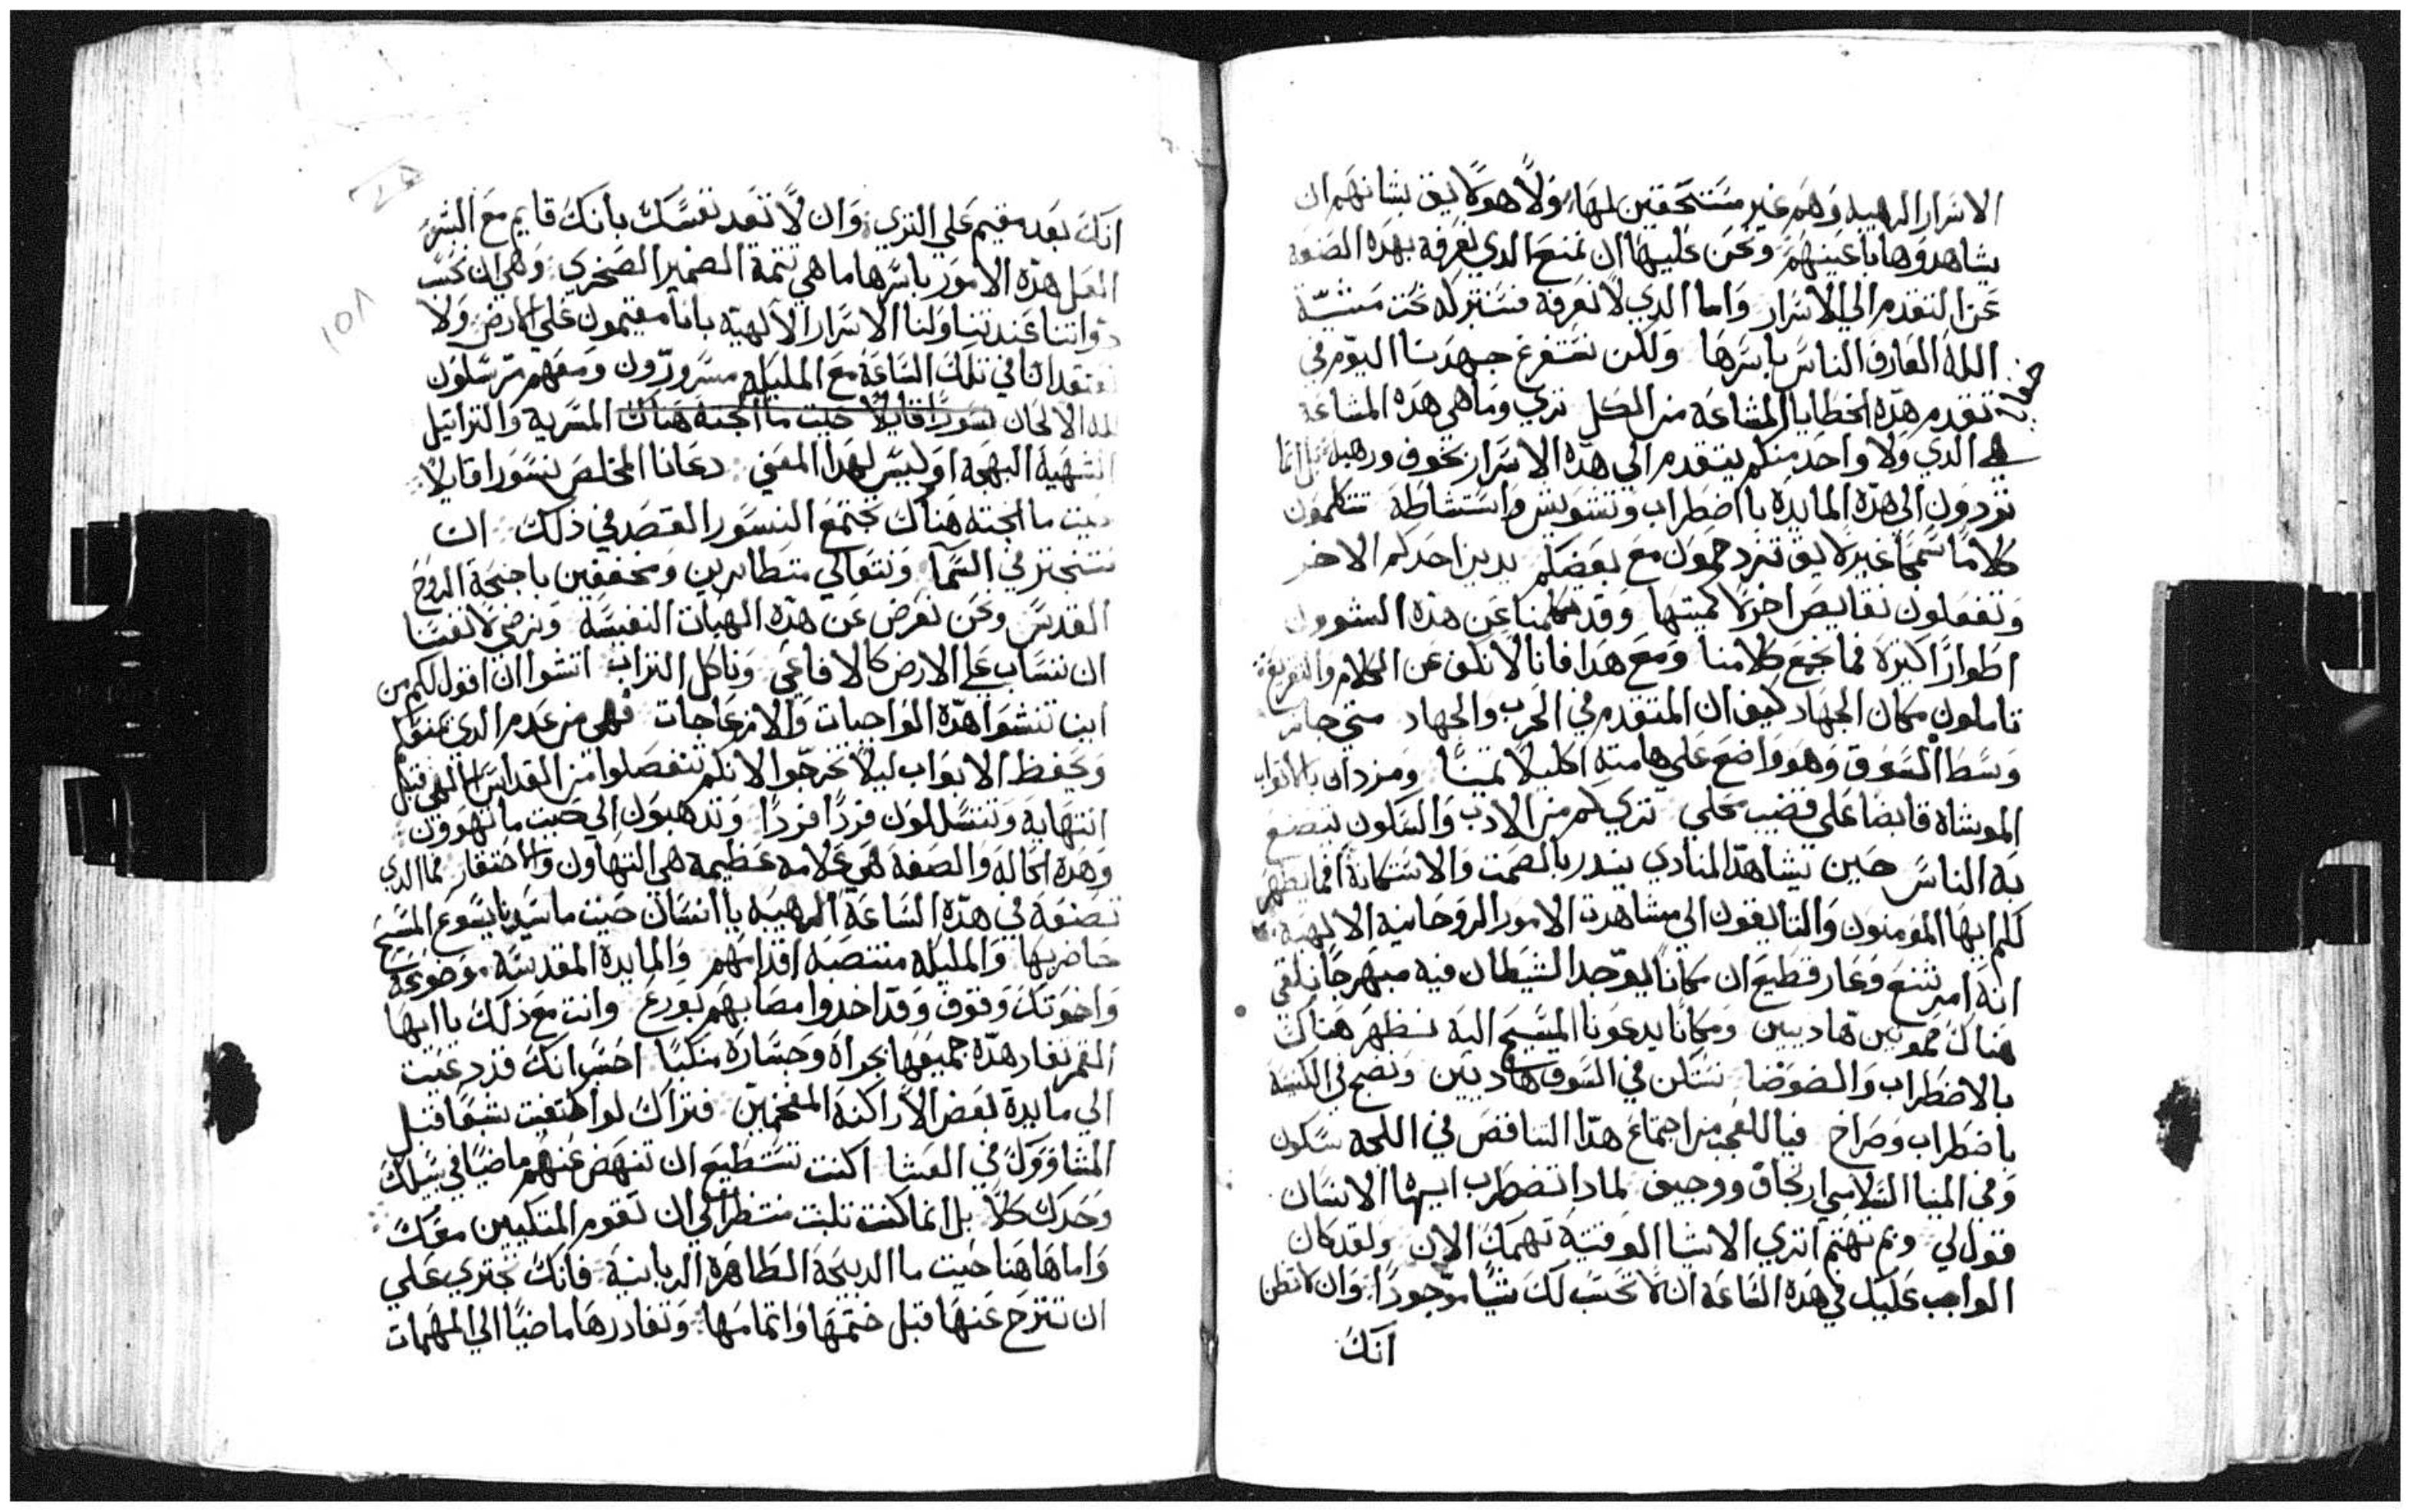 الاسرار الرهيبه وهم غير مستحقين لها، ولا هو لايق بشانهم ان
يشاهدوها باعينهم ونحن علينا ان نمنع الدي نعرفه بهده الصفه
عن التقدم الي الاسرار واما الدي لا نعرفه فسنتركه تحت مشيّة
الله العارف الناس باسرها ولكن نستفرغ جهدنا اليوم في
تقدم هده الخطايا المشاعة من الكل تري وما هي هده المشاعة
هي الدي ولا واحد منكم يتقدم الي هده الاسرار بخوف ورهبه بل انما
تردون الي هده المايدة باضطراب وتشويش واستشاطة تتكلمون
كلاماً سمجاً غير لايق تزدحمون مع بعضكم يدير احدكم الاخر
وتفعلون نقايص اخر لا كميتها وقد تكلمنا عن هده الشوون
اطواراً كثيرة فما نجع كلامنا ومع هدا فانا لا نكف عن الكلام والتقريع
تاملون مكان الجهاد كيف ان المتقدم في الحرب والجهاد متي جاز
وسط السوق وهو واضع علي هامته اكليلاً تميناً ومزدان بالاثواب
الموشاة قابضاً علي قضيب محلي تري كم من الادب والسكون يتصنع
به الناس حين يشاهد المنادي يندر بالصمت والاستكانة افما يظهر
لكم ايها المومنون والتايقون الي مشاهدت الامور الروحانية الالهية
انه امر شنع وعار فظيع ان مكاناً يوجد الشيطان فيه مبهرجاً نلقي
هناك صموتين هاديين ومكاناً يدعونا المسيح اليه نظهر هناك
بالاضطراب والضوضا نسكن في السوق هاديين ونضج في الكنيسة
باضطراب وصراخ فيا للعجب من اجتماع هدا التناقض في اللجة سكون
وفي المينا السلامي ارتجاف ووجيف لمادا تضطرب ايها الانسان
قول لي وبم تهتم اتري الاشيا الوقتية تهمك الان ولقد كان
الواجب عليك في هده الساعة ان لا تحسب لك شياً موجوداً وان لا تظن
انك
انك بعد مقيم علي التري وان لا تعد نفسك بانك قايم مع البشر
العل هده الامور باسرها ما هي تتمة الضمير الصخري وهي ان نحسب
دواتنا عند تناولنا الاسرار الالهيّه بانا مقيمون علي الارض ولا
نعتقد انا في تلك الساعة مع المليكه مسرورون ومعهم مترسلون
الالحان نسوراً قايلاً حيت ما الجثه هناك المسرية والتراتيل
الشهية البهجه او ليس لهدا المعني دعانا المخلص نسورا قايلاً
حيت ما الجته هناك تجتمع النسور القصد في ذلك ان
نتبختر في السما ونتعالي متطايرين ومخففين باجنحة الروح
القدس ونحن نعرض عن هده الهبات النفيسه ونرضي لانفسنا
ان ننساب علي الارض كالافاعي وناكل التراب اتشوا ان اقول لكم من
اين تنشوا هده الواجبات والانزعاجات فهي من عدم الدي يمنعكم
ويحفظ الابواب ليلا تخرجوا لانكم تنفصلوا من القداس الالهي قبل
انتهايه وتتسللون فرداً فرداً وتدهبون الي حيت ما تهوون
وهده الحاله والصفه هي علامه عظيمه هي التهاون والاحتقار فما الدي
تصنعه في هده الساعة الرهيبه يا انسان حيت ما سيدنا يسوع المسيح
حاضر بها والمليكه منتصبه اقدامهم والمايدة المقدسه موضوعة
واخوتك وقوف وقد اخدوا مصابهم بورع وانت مع ذلك يا ايها
القمر تغادر هده جميعها بجراة وجسارة منكباً احسب انك قد دعيت
الي مايدة بعض الاراكنة المفخمين فتراك لو اكتفيت شبعاً قبل
المشاوولك في العشا اكنت تستطيع ان تنهض عنهم ماضياً في سبيلك
وحدك كلا بل انما كنت تلبت منتظراً الي ان تقوم المتكيين معك
واما هاهنا حيت ما الدبيحة الطاهرة الربانية فانك تجتري علي
ان تنزح عنها قبل ختمها واتمامها وتغادرها ماضياً الي المهمات